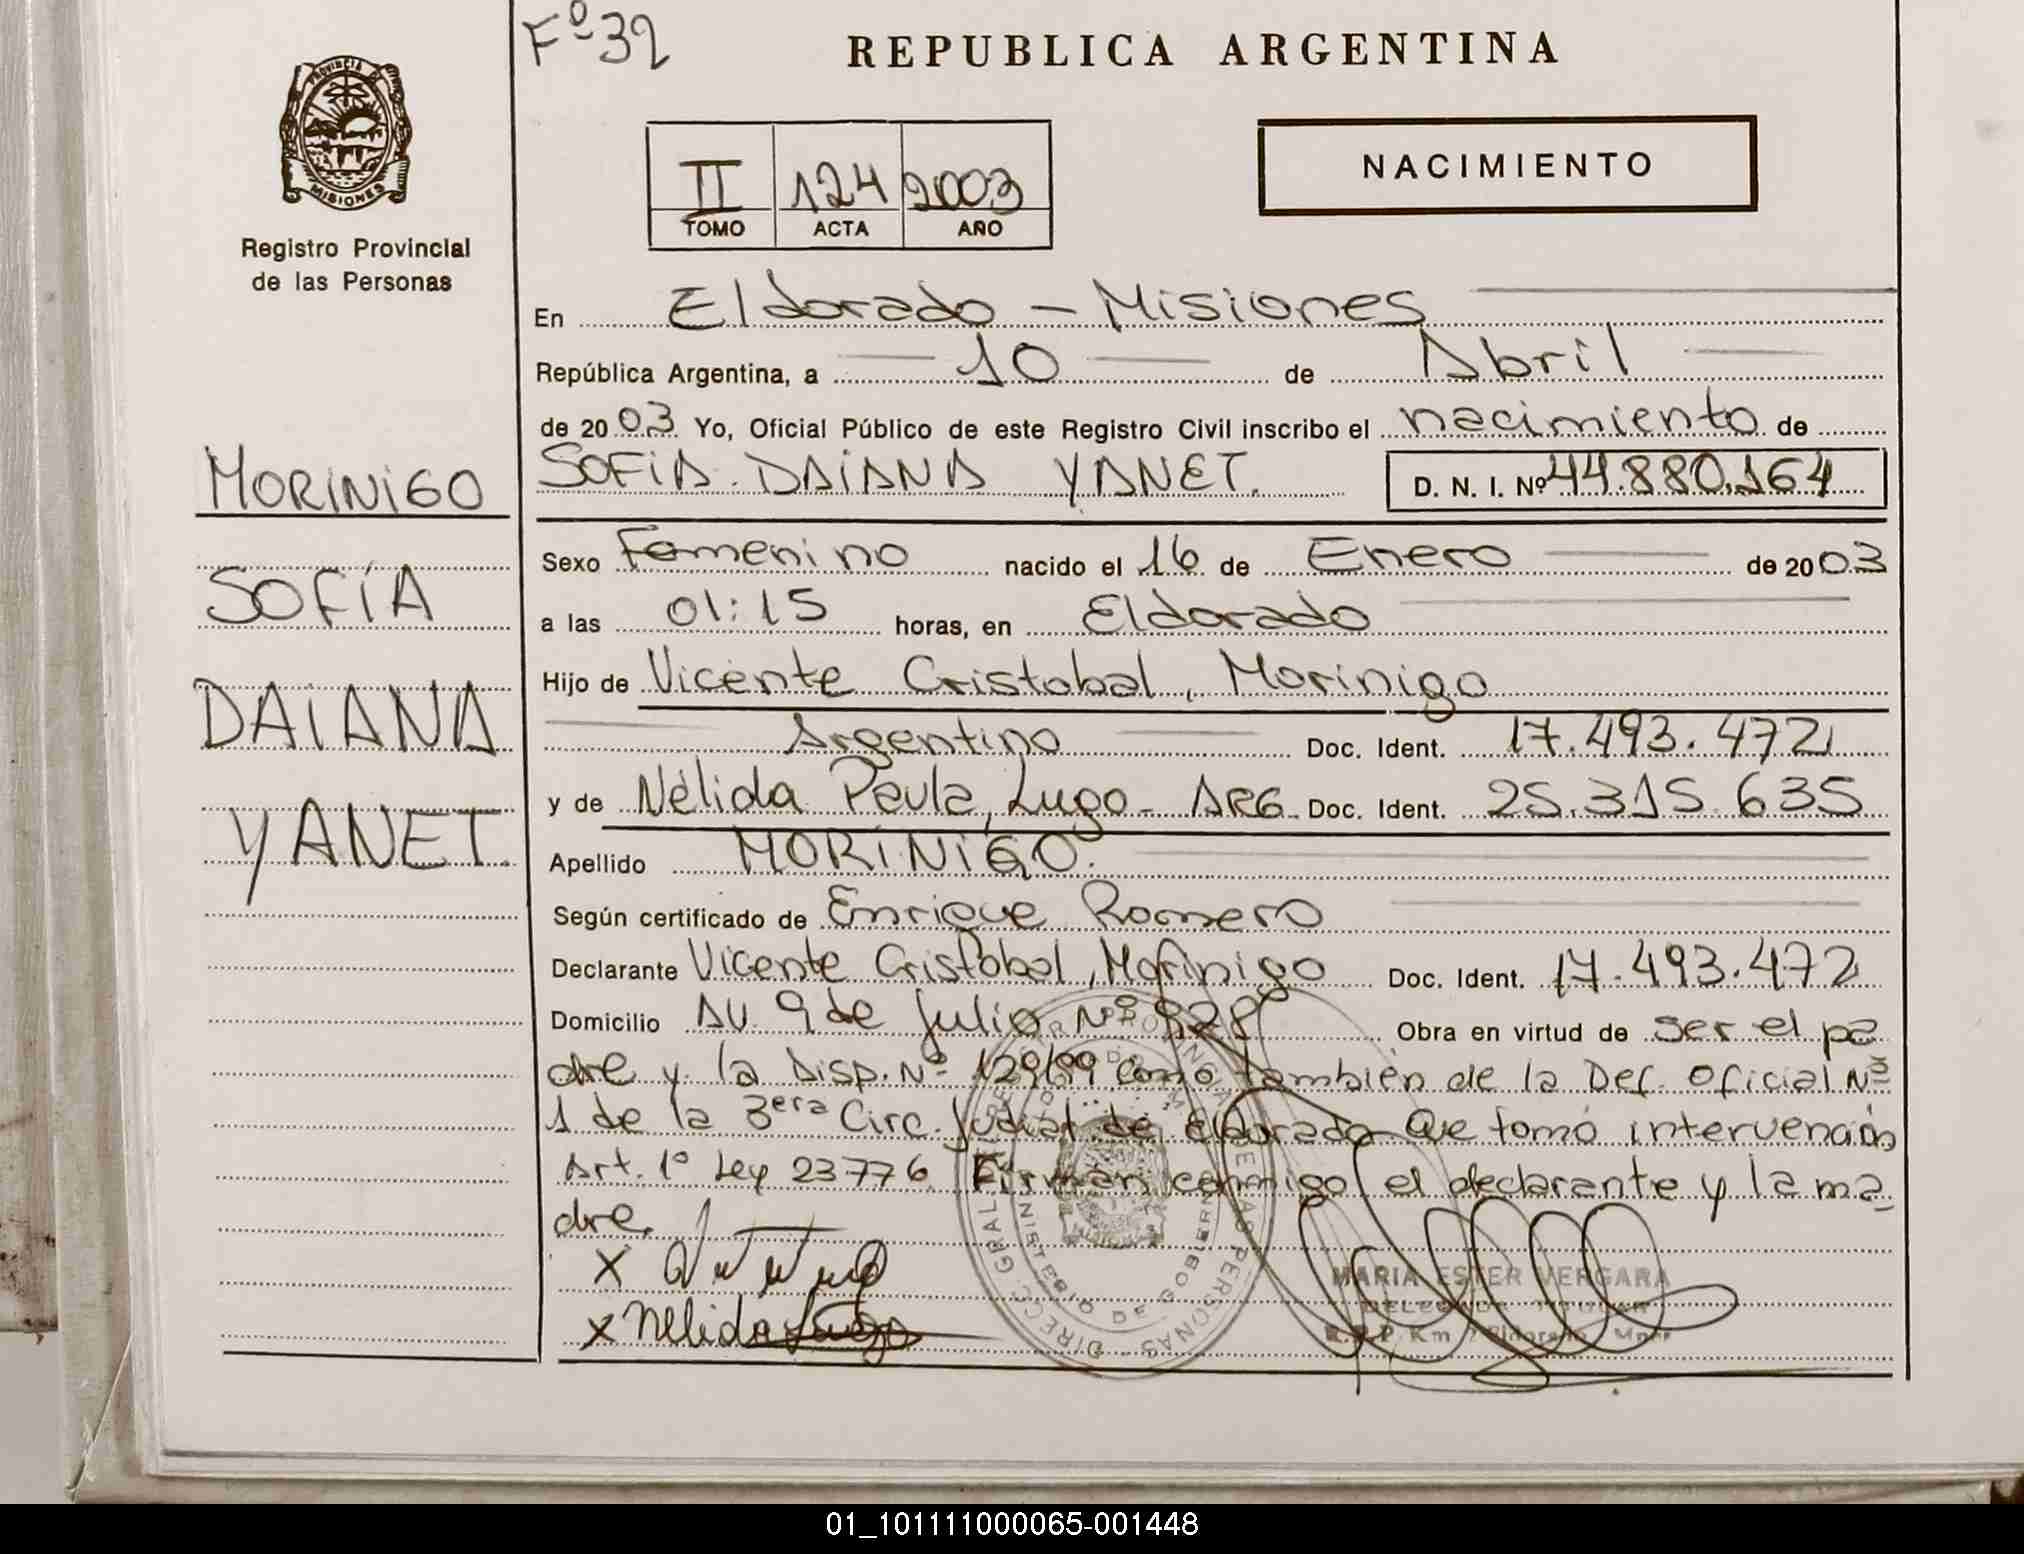 Fº 32
REPUBLICA ARGENTINA
PROVINCIA DE
MISIONES
Registro Provincial
de las Personas
II 124 2003
TOMO ACTA AÑO
NACIMIENTO
En Eldorado - Misiones
República Argentina, a 10 de Abril
de 2003 Yo, Oficial Público de este Registro Civil inscribo el nacimiento de
SOFIA DAIANA YANET. D. N. I. Nº 44.880.164
MORINIGO
SOFÍA
DAIANA
YANET.
Sexo Femenino nacido el 16 de Enero de 2003
a las 01:15 horas, en Eldorado
Hijo de Vicente Cristobal, Morinigo
Argentino Doc. Ident. 17.493.472
y de Nélida Paula, Lugo - ARG. Doc. Ident. 25.315.635
Apellido MORINIGO.
Según certificado de Enrique Romero
Declarante Vicente Cristobal, Morinigo Doc. Ident. 17.493.472
Domicilio AV. 9 de Julio Nº 928 Obra en virtud de ser el pa
dre y la Disp. Nº 129/99 como también de la Def. Oficial Nº
1 de la 3era Circ. Judicial de Eldorado Que tomó intervención
Art. 1º Ley 23776. Firman conmigo el declarante y la ma
dre.
X
X Nélida Lugo
MARIA ESTER VERGARA
DELEGADA TITULAR
MINISTERIO DE GOBIERNO
01_101111000065-001448